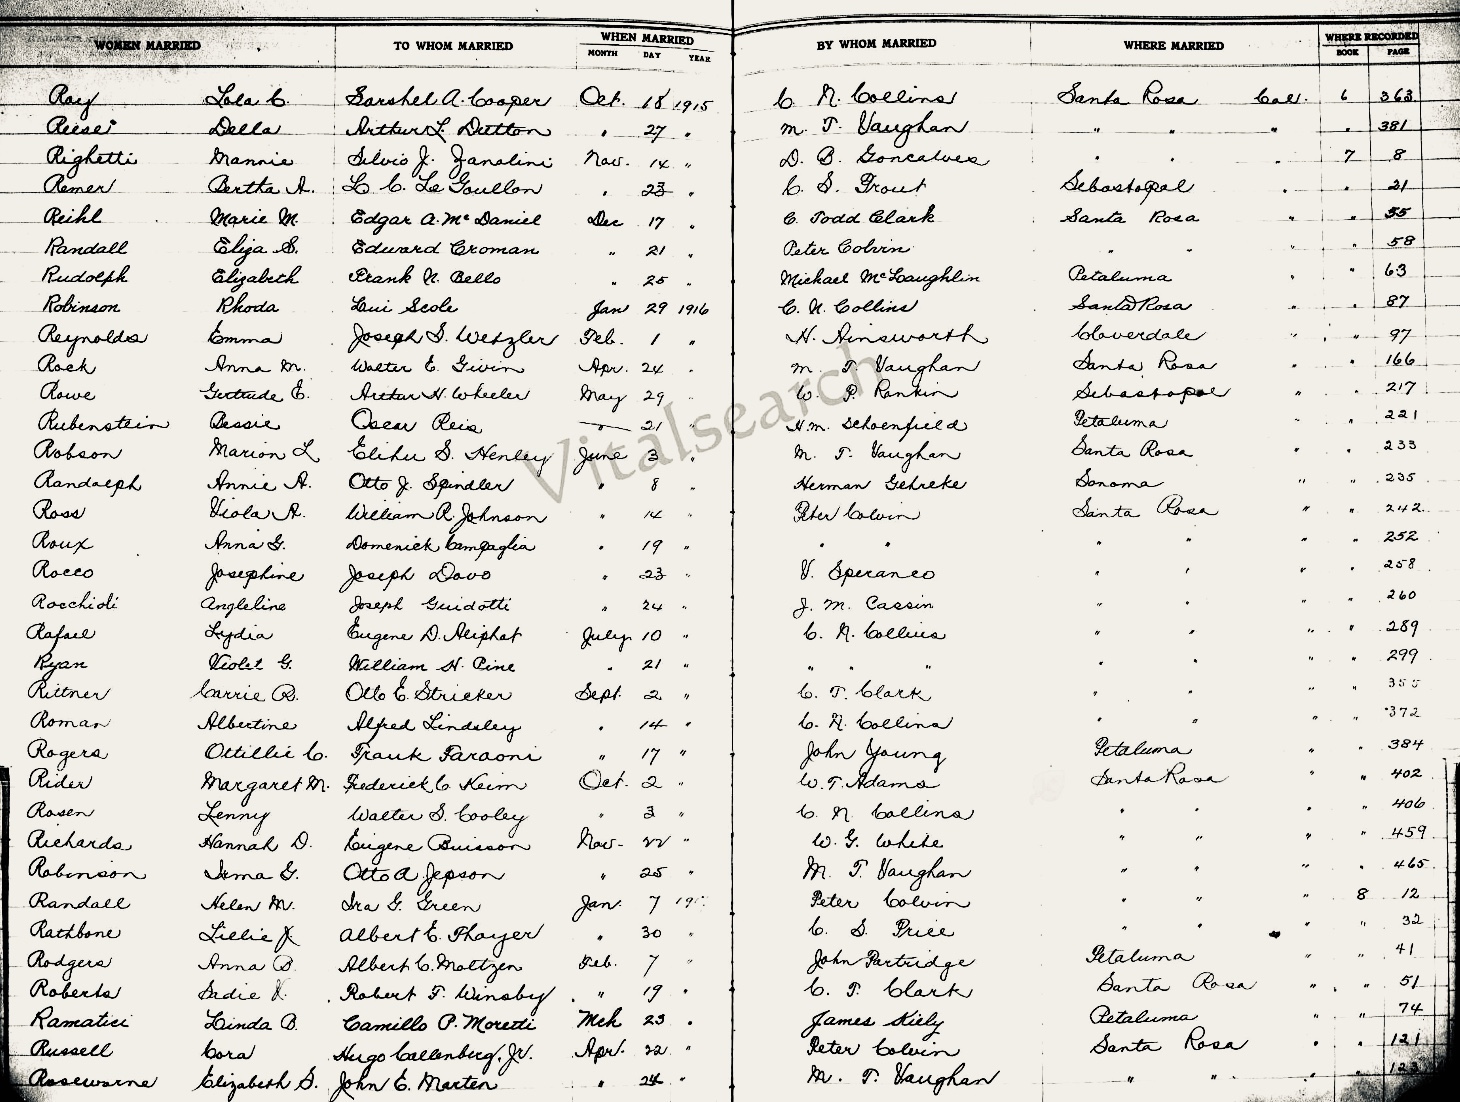 WOMEN MARRIED TO WHOM MARRIED WHEN MARRIED BY WHOM MARRIED WHERE MARRIED WHERE RECORDED
MONTH DAY YEAR BOOK PAGE
Ray Lola C. Sarshel A. Cooper Oct. 18 1915 C. N. Collins Santa Rosa Cal. 6 363
Reese Della Arthur L. Dutton " 27 " M. T. Vaughan " " " " 381
Righetti Mannie Silvio J. Zanolini Nov. 14 " D. B. Goncalves " " " 7 8
Remer Bertha A. L. C. Le Goullon " 23 " C. S. Trout Sebastopol " " 21
Reihl Marie M. Edgar A. McDaniel Dec 17 " C. Todd Clark Santa Rosa " " 55
Randall Eliza S. Edward Croman " 21 " Peter Colvin " " " " 58
Rudolph Elizabeth Frank N. Bello " 25 " Michael McLaughlin Petaluma " " 63
Robinson Rhoda Lui Scole Jan 29 1916 C. N. Collins Santa Rosa " " 87
Reynolds Emma Joseph S. Wetzler Feb. 1 " H. Ainsworth Cloverdale " " 97
Rock Anna M. Walter E. Givin Apr. 24 " M. T. Vaughan Santa Rosa " " 166
Rowe Gertrude E. Arthur H. Wheeler May 29 " W. P. Rankin Sebastopol " " 217
Rubenstein Bessie Oscar Reis " 21 " H.M. Schoenfield Petaluma " " 221
Robson Marion L Elihu S. Henley June 3 " M. T. Vaughan Santa Rosa " " 233
Randolph Annie A. Otto J. Spindler " 8 " Herman Gehreke Sonoma " " 235
Ross Viola A. William R. Johnson " 14 " Peter Colvin Santa Rosa " " 242
Roux Anna G. Domenick Campaglia " 19 " " " " " " " 252
Rocco Josephine Joseph Dovo " 23 " V. Speranco " " " " 258
Rocchioli Angleline Joseph Guidotti " 24 " J. M. Cassin " " " " 260
Rafael Lydia Eugene D. Aliphat July 10 " C. N. Collins " " " " 289
Ryan Violet G. William H. Pine " 21 " " " " " " " " 299
Rittner Carrie B. Otto E. Stricker Sept. 2 " C. T. Clark " " " " 355
Roman Albertine Alfred Lindsley " 14 " C. N. Collins " " " " 372
Rogers Ottillie C. Frank Faraoni " 17 " John Young Petaluma " " 384
Rider Margaret M. Frederick C. Keim Oct. 2 " W. T. Adams Santa Rosa " " 402
Rosen Lenny Walter S. Cooley " 3 " C. N. Collins " " " " 406
Richards Hannah D. Eugene Buisson Nov- 22 " W. G. White " " " " 459
Robinson Irma G. Otto A Jepson " 25 " M. T. Vaughan " " " " 465
Randall Helen M. Ira G. Green Jan. 7 Peter Colvin " " " 8 12
Rathbone Lillie J. Albert E. Thayer " 30 " C. S. Price " " " 32
Rodgers Anna B. Albert C. Moltzen Feb. 7 " John Partridge Petaluma " " 41
Roberts Sadie Robert F. Winsby " 19 " C. T. Clark Santa Rosa " " 51
Ramatici Linda B. Camillo P. Moretti Mch 23 " James Kiely Petaluma " " 74
Russell Cora Hugo Callenberg, Jr. Apr. 22 " Peter Colvin Santa Rosa " " 121
Rosewarne Elizabeth S. John E. Marten " 24 " M. T. Vaughan " " " " 123
Vitalsearch